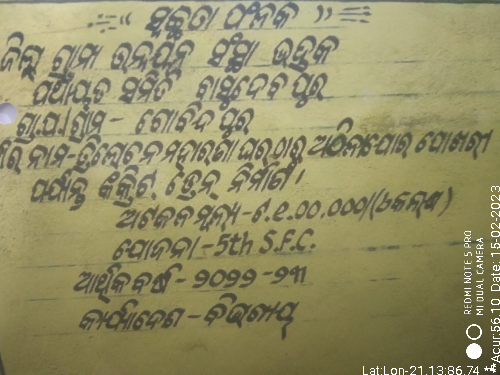 "ସ୍ୱଚ୍ଛତା ଫଳକ"
ଜିଲ୍ଲା ଗ୍ରାମ୍ୟ ଉନ୍ନୟନ ସଂସ୍ଥା ଭଦ୍ରକ
ପଞ୍ଚାୟତ ସମିତି ବାସୁଦେବପୁର
ଗ୍ରା.ପ./ଗ୍ରାମ - ଗୋବିନ୍ଦପୁର
ନାମ-ତ୍ରିଲୋଚନ ମହାରଣା ଘରଠାରୁ ପୋଖରୀ
ପର୍ଯ୍ୟନ୍ତ କଂକ୍ରିଟ୍ ଡ୍ରେନ୍ ନିର୍ମାଣ ।
ଅଟକଳ ମୂଲ୍ୟ-ଟ.୧.୦୦.୦୦୦/(୧ଲକ୍ଷ)
ଯୋଜନା-5th S.F.C.
ଆର୍ଥିକ ବର୍ଷ - ୨୦୨୨-୨୩
କାର୍ଯ୍ୟାଦେଶ - ବିଭାଗୀୟ
REDMI NOTE 5 PRO
MI DUAL CAMERA
Lat:Lon-21.13:86.74 **Acur:56.10 Date:15-02-2023